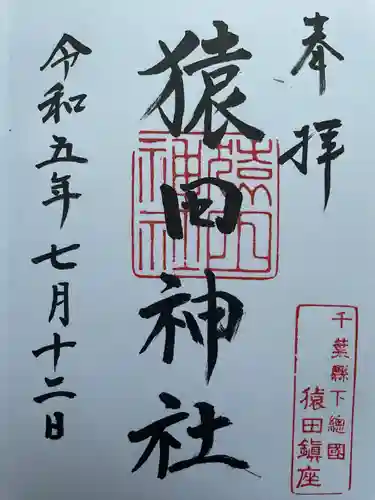 奉拝
猿田神社
猿田神社
令和五年七月十二日
千葉縣下總國
猿田鎭座